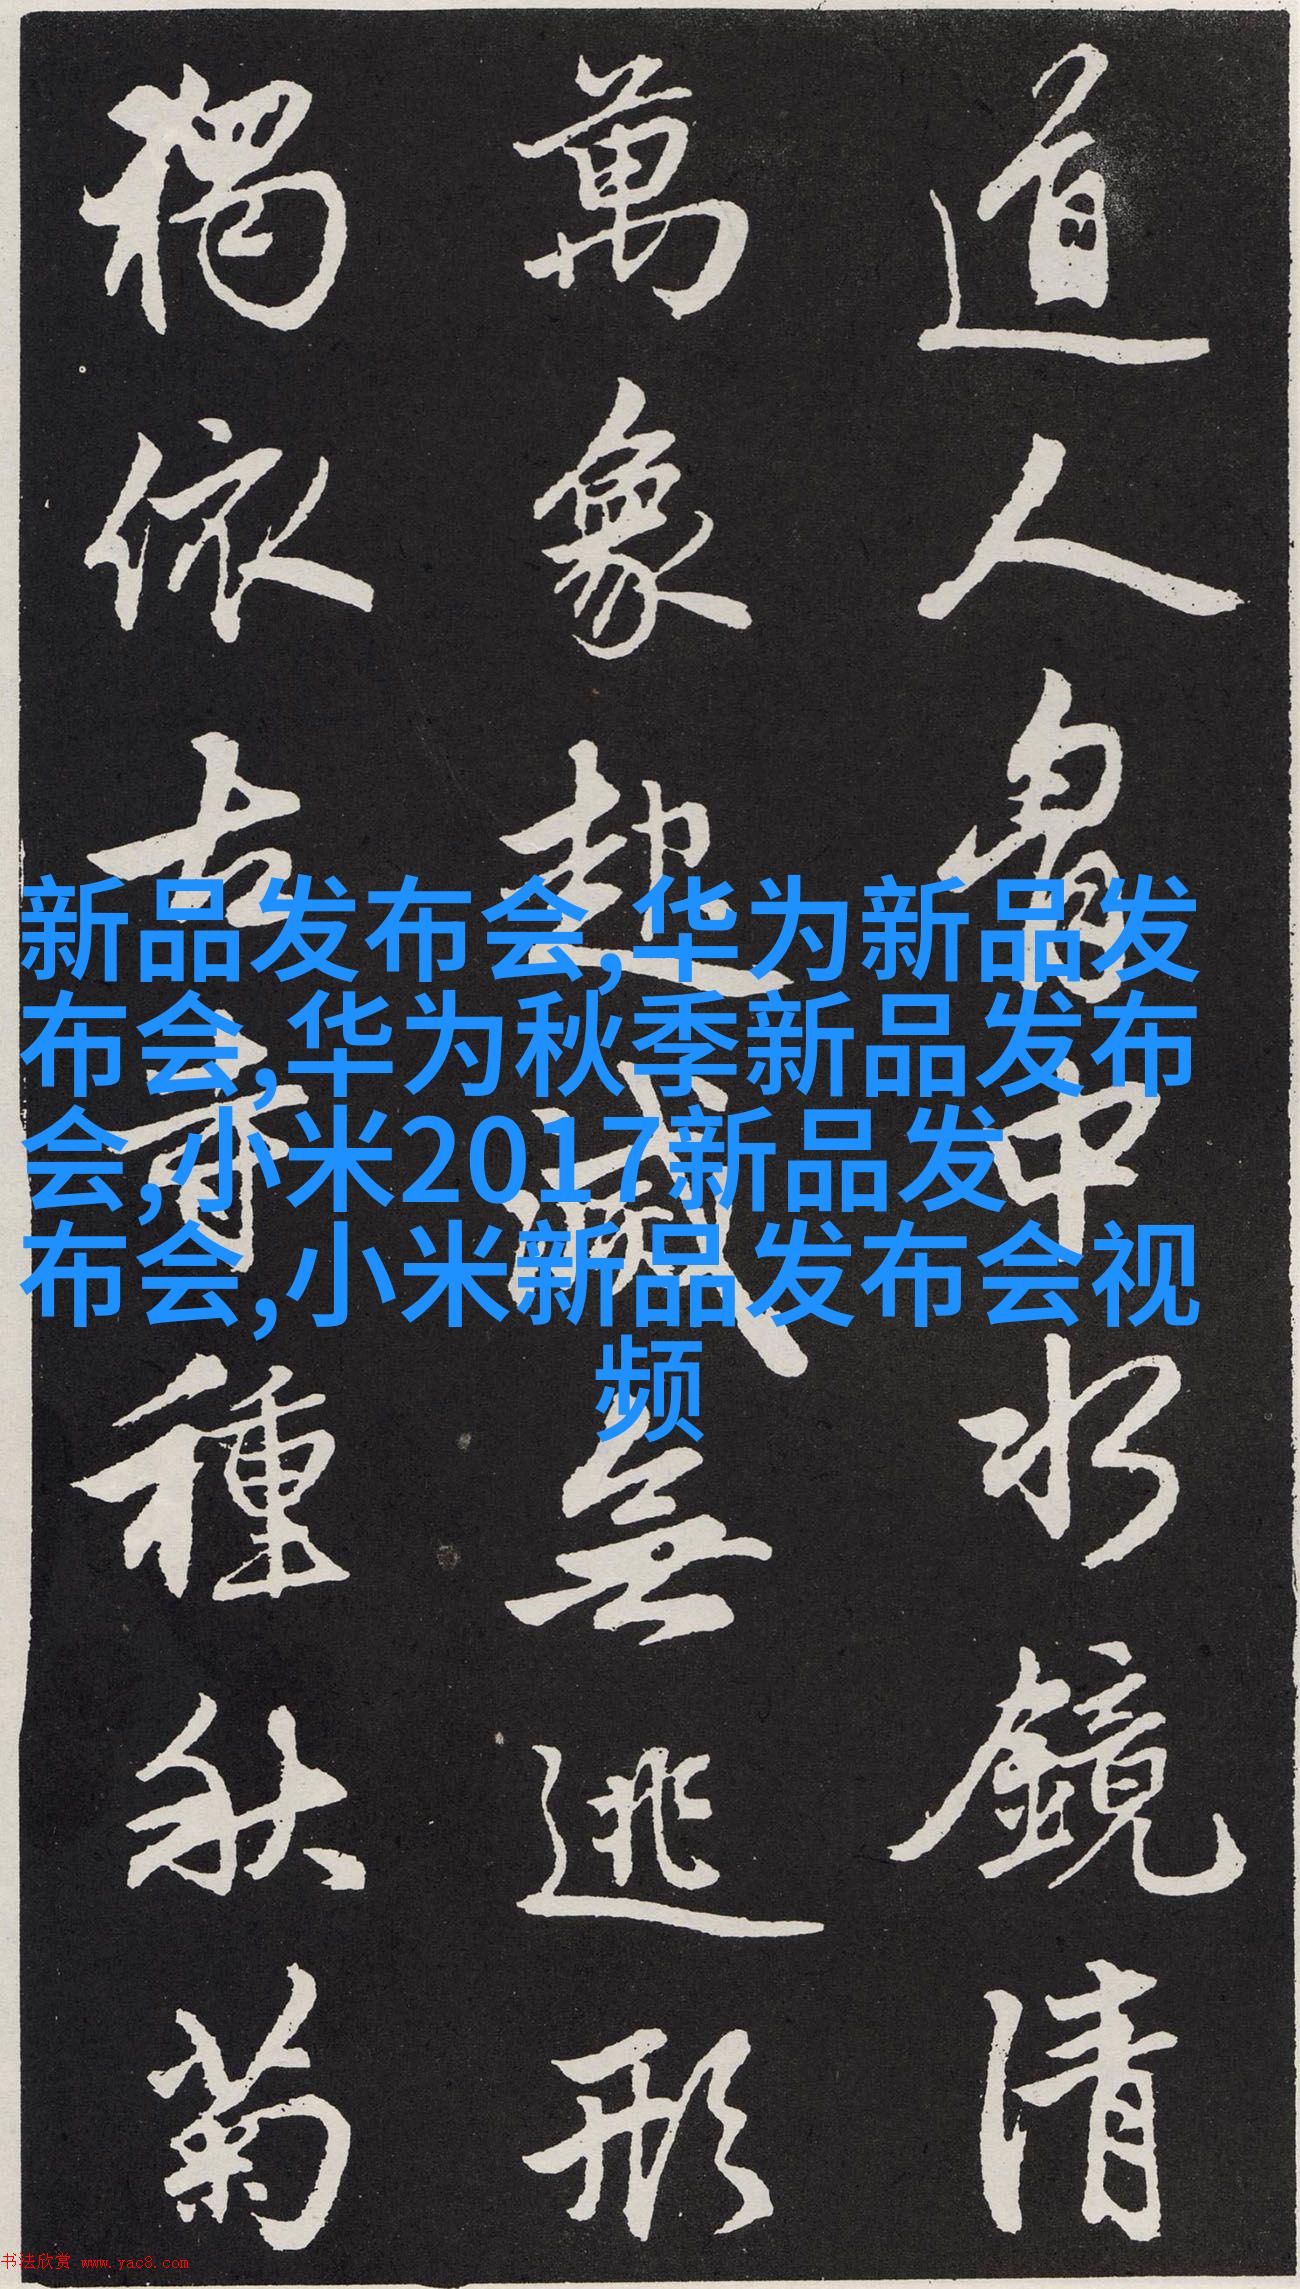 道人胷中水鏡清
萬象起滅無逃形
獨依古寺種秋菊
新品发布会,华为新品发
布会,华为秋季新品发布
会,小米2017新品发
布会,小米新品发布会视
频
书法欣赏 www.yac8.com